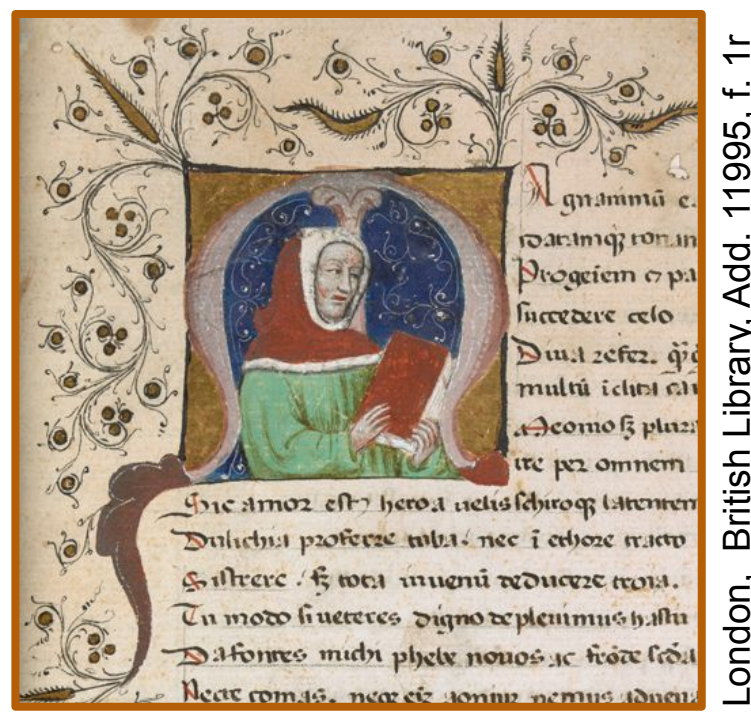 M
Agnanimū e
idatamqȝ tonan
Progeiem ⁊ pa
succedere celo
Diua refer. qͥd
multū īclita cat
Meonio sȝ plura
ire per omnem
Sic amor est heroa uelis schiroqȝ latentem
Dulichia proferre tuba. nec ī ethore tracto
Sistrere. sȝ tota iuuenū deducere troia.
Tu modo si ueteres digno depleuimus hastu
Da fontes michi phebe nouos ac frōde
Necte comas. neqȝ eīȝ aoniuȝ nemus aduena
London, British Library, Add. 11995, f. 1r